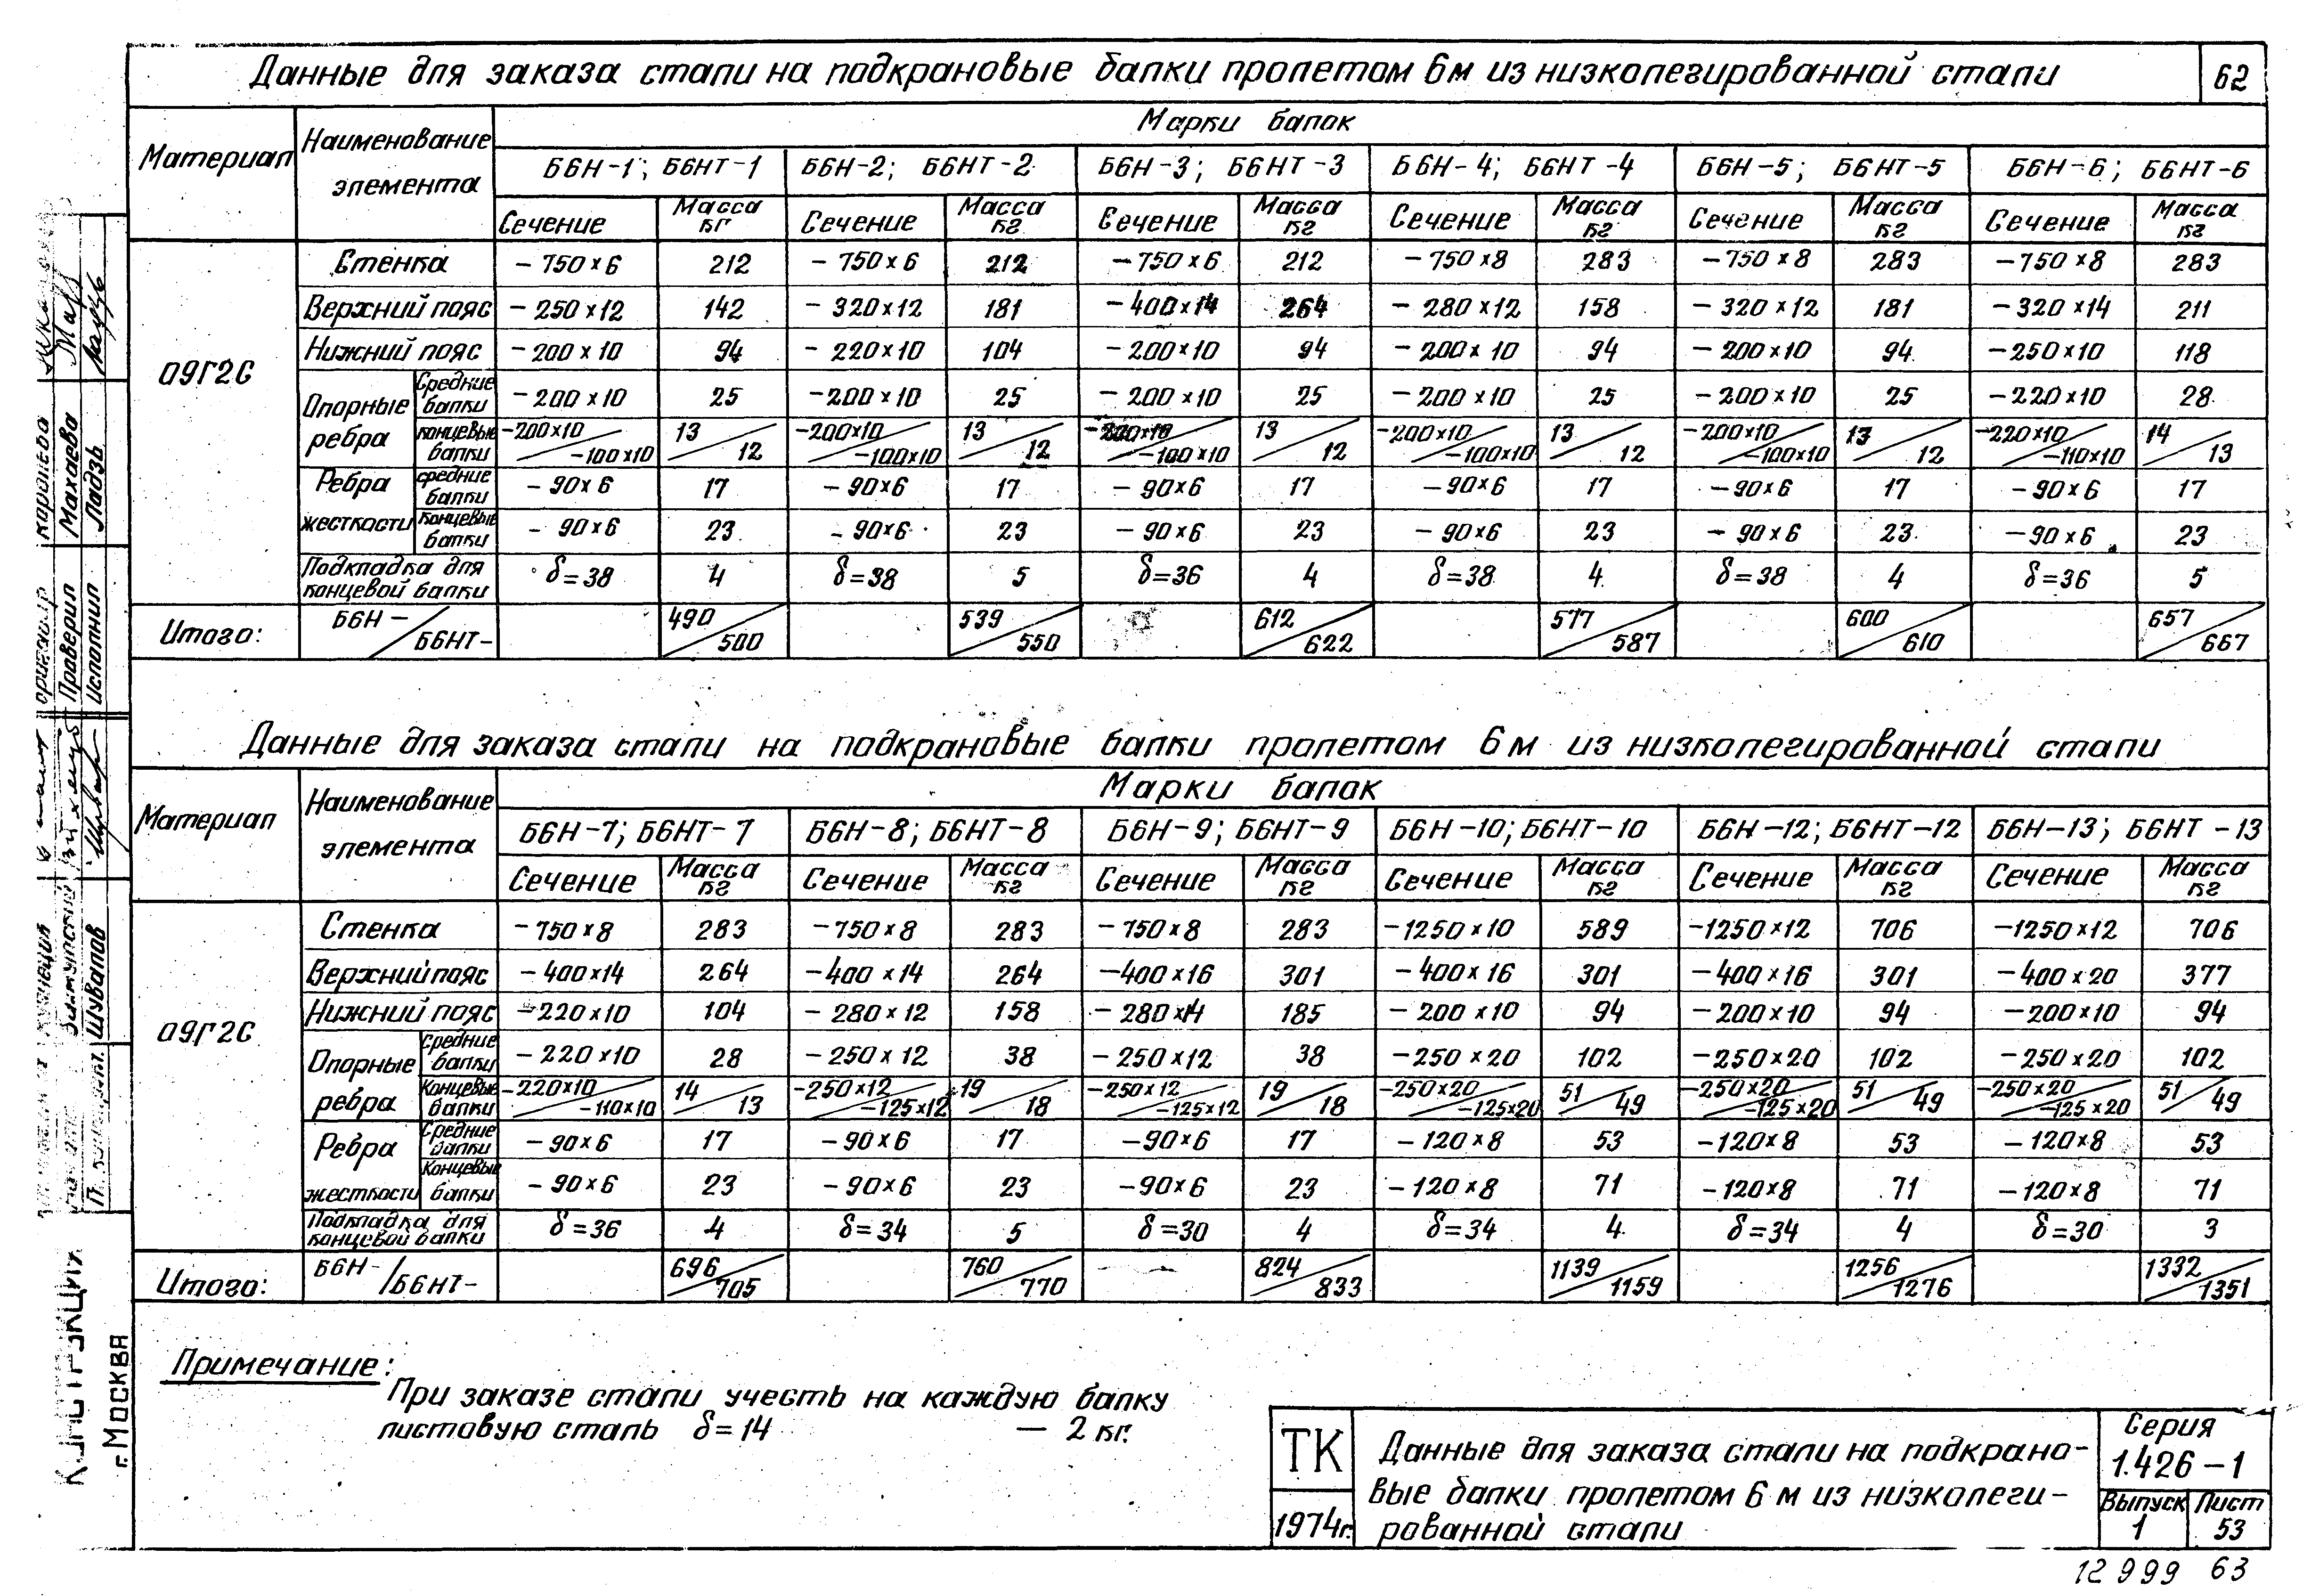 Данные для заказа стали на подкрановые балки пролетом 6м из низколегированной стали 62
Материал Наименование элемента Марки балок
Б6Н-1; Б6НТ-1 Б6Н-2; Б6НТ-2 Б6Н-3; Б6НТ-3 Б6Н-4; Б6НТ-4 Б6Н-5; Б6НТ-5 Б6Н-6; Б6НТ-6
Сечение Масса кг Сечение Масса кг Сечение Масса кг Сечение Масса кг Сечение Масса кг Сечение Масса кг
09Г2С
Стенка -750×6 212 -750×6 212 -750×6 212 -750×8 283 -750×8 283 -750×8 283
Верхний пояс -250×12 142 -320×12 181 -400×14 264 -280×12 158 -320×12 181 -320×14 211
Нижний пояс -200×10 94 -220×10 104 -200×10 94 -200×10 94 -200×10 94 -250×10 118
Опорные ребра Средние балки -200×10 25 -200×10 25 -200×10 25 -200×10 25 -200×10 25 -220×10 28
концевые балки -200×10/-100×10 13/12 -200×10/-100×10 13/12 -200×10/-100×10 13/12 -200×10/-100×10 13/12 -200×10/-100×10 13/12 -220×10/-110×10 14/13
Ребра жесткости средние балки -90×6 17 -90×6 17 -90×6 17 -90×6 17 -90×6 17 -90×6 17
концевые балки -90×6 23 -90×6 23 -90×6 23 -90×6 23 -90×6 23 -90×6 23
Подкладка для концевой балки δ=38 4 δ=38 5 δ=36 4 δ=38 4 δ=38 4 δ=36 5
Итого: Б6Н-/Б6НТ- 490/500 539/550 612/622 577/587 600/610 657/667
Данные для заказа стали на подкрановые балки пролетом 6м из низколегированной стали
Материал Наименование элемента Марки балок
Б6Н-7; Б6НТ-7 Б6Н-8; Б6НТ-8 Б6Н-9; Б6НТ-9 Б6Н-10; Б6НТ-10 Б6Н-12; Б6НТ-12 Б6Н-13; Б6НТ-13
Сечение Масса кг Сечение Масса кг Сечение Масса кг Сечение Масса кг Сечение Масса кг Сечение Масса кг
09Г2С
Стенка -750×8 283 -750×8 283 -750×8 283 -1250×10 589 -1250×12 706 -1250×12 706
Верхний пояс -400×14 264 -400×14 264 -400×16 301 -400×16 301 -400×16 301 -400×20 377
Нижний пояс -220×10 104 -280×12 158 -280×14 185 -200×10 94 -200×10 94 -200×10 94
Опорные ребра Средние балки -220×10 28 -250×12 38 -250×12 38 -250×20 102 -250×20 102 -250×20 102
Концевые балки -220×10/-110×10 14/13 -250×12/-125×12 19/18 -250×12/-125×12 19/18 -250×20/-125×20 51/49 -250×20/-125×20 51/49 -250×20/-125×20 51/49
Ребра жесткости Средние балки -90×6 17 -90×6 17 -90×6 17 -120×8 53 -120×8 53 -120×8 53
Концевые балки -90×6 23 -90×6 23 -90×6 23 -120×8 71 -120×8 71 -120×8 71
Подкладка для концевой балки δ=36 4 δ=34 5 δ=30 4 δ=34 4 δ=34 4 δ=30 3
Итого: Б6Н-/Б6НТ- 696/705 760/770 824/833 1139/1159 1256/1276 1332/1351
Примечание:
При заказе стали учесть на каждую балку
листовую сталь δ=14 — 2 кг.
ТК
1974г.
Данные для заказа стали на подкрано-
вые балки пролетом 6 м из низколеги-
рованной стали
Серия
1.426-1
Выпуск 1
Лист 53
12999 63
Королева
Проверил Махаева
Исполнил Ладзь
Шувалов
г. Москва